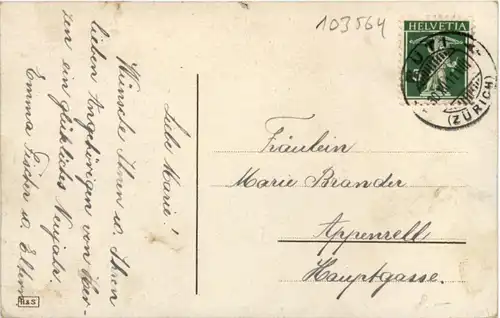 103564
HELVETIA
RÜTI
(ZÜRICH)
Liebe Marie!
Wünsche Ihnen u. Ihren
lieben Angehörigen von Her-
zen ein glückliches Neujahr.
Emma Fischer u. Eltern
Fräulein
Marie Brander
Appenzell,
Hauptgasse.